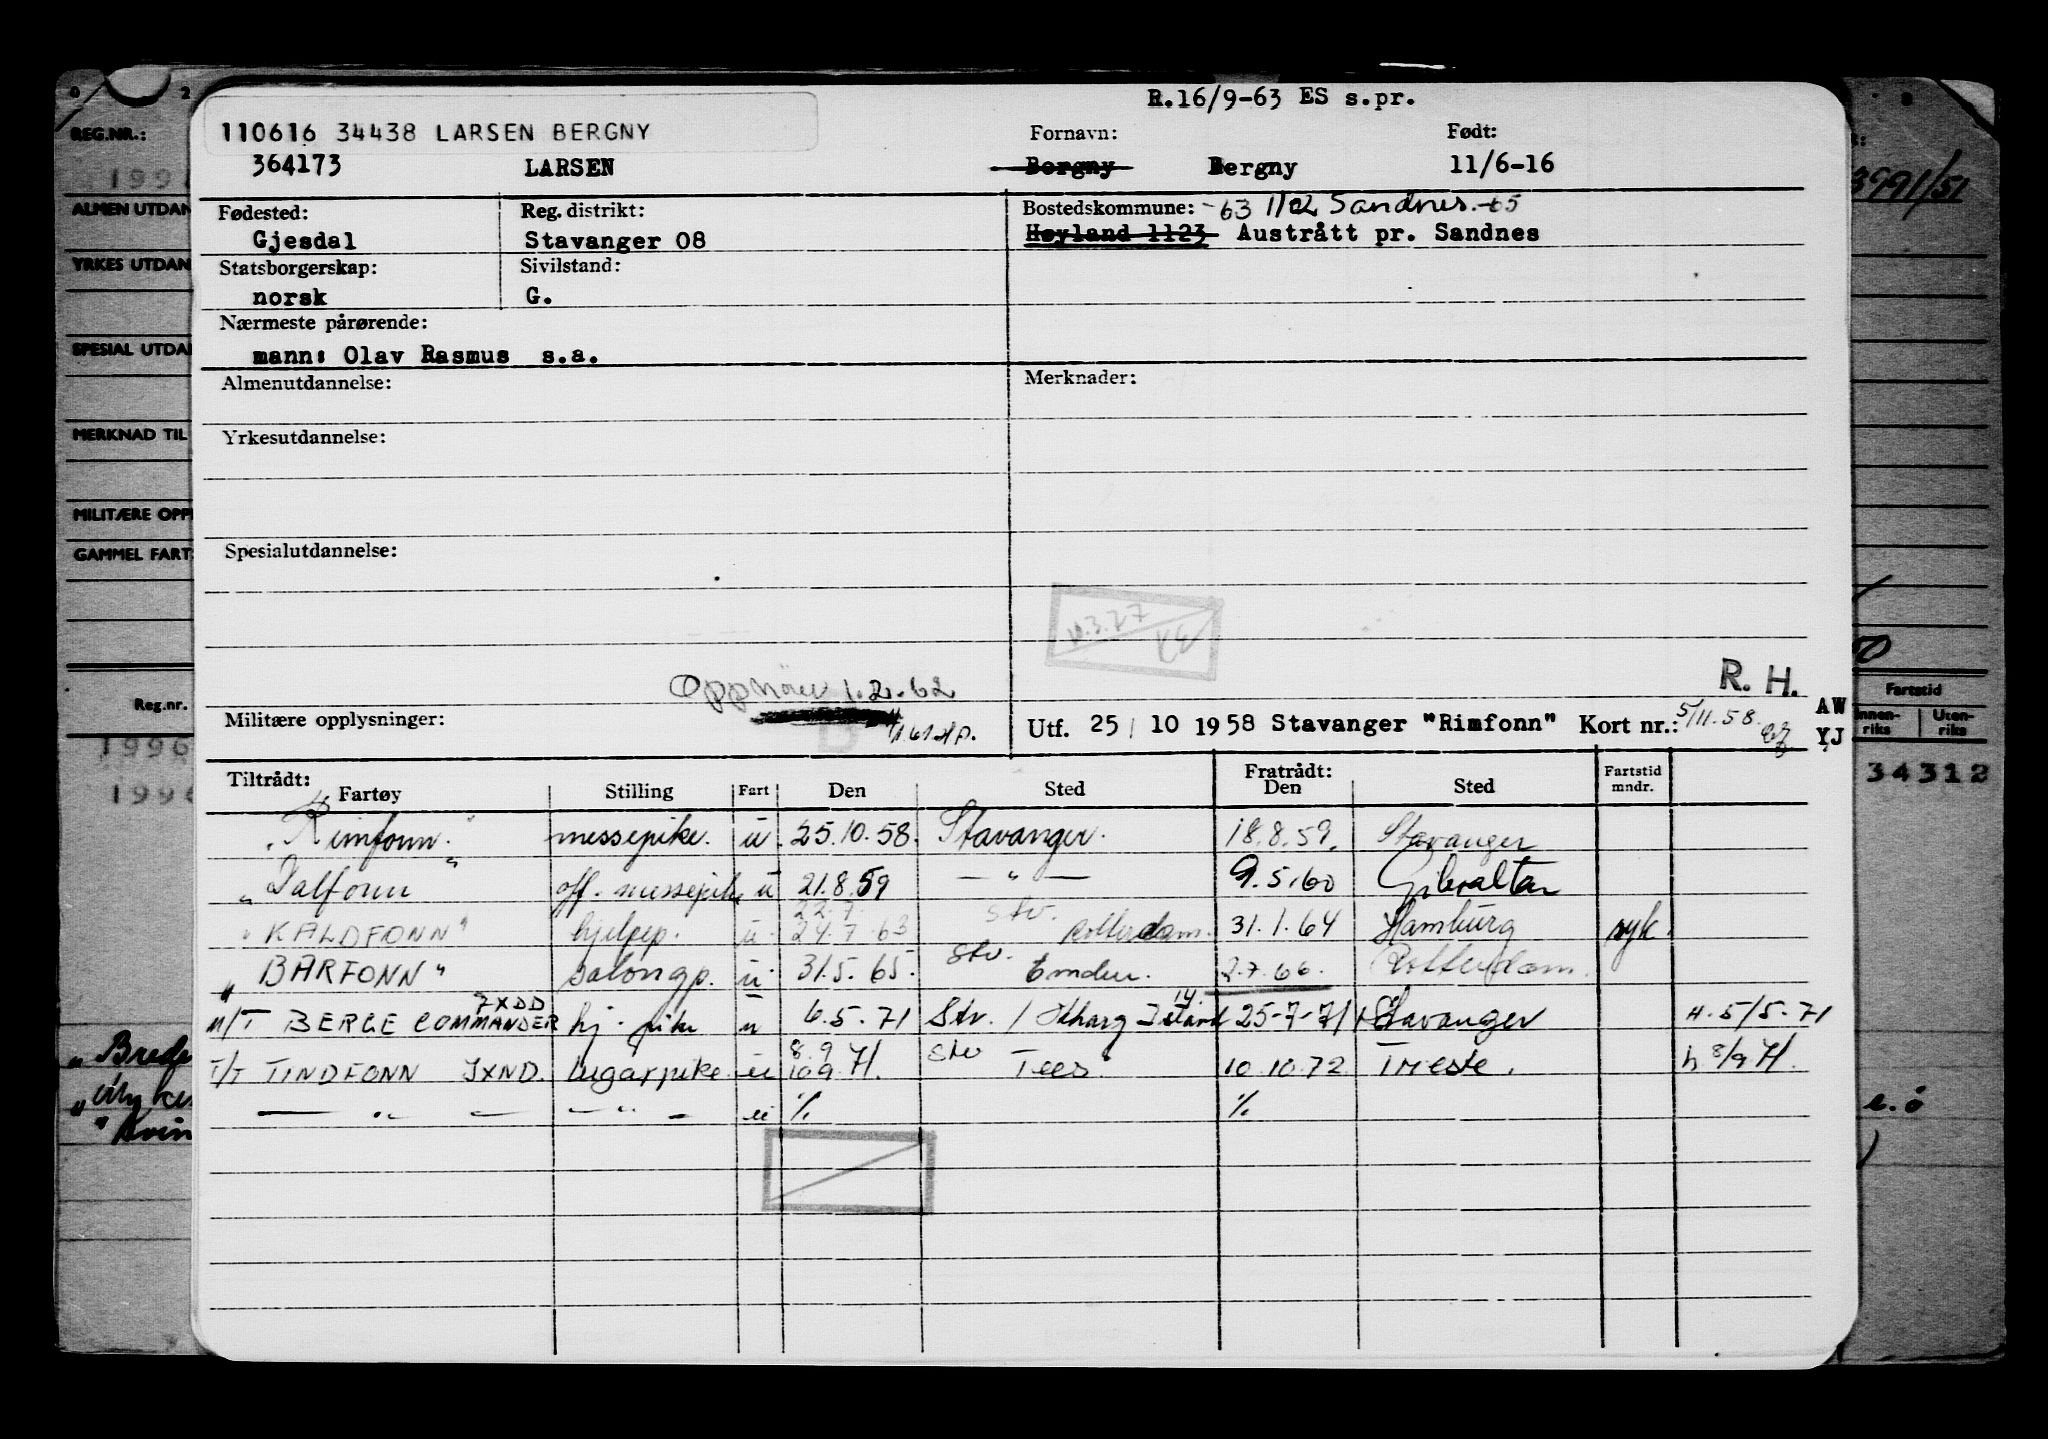 R.16/9-63 ES s.pr.
110616 34438 LARSEN BERGNY
Fornavn: Født:
364173 LARSEN Borgny Bergny 11/6-16
Fødested: Reg. distrikt: Bostedskommune: -63 1102 Sandnes. -65
Gjesdal Stavanger 08 Høyland 1123 Austrått pr. Sandnes
Statsborgerskap: Sivilstand:
norsk G.
Nærmeste pårørende:
mann: Olav Rasmus s.a.
Almenutdannelse: Merknader:
Yrkesutdannelse:
Spesialutdannelse:
10.3.77
R. H.
1.2.62
Militære opplysninger: Utf. 25/10 1958 Stavanger "Rimfonn" Kort nr.: 5/11.58. AW
YJ
Tiltrådt: Fratrådt:
Fartøy Stilling Fart Den Sted Den Sted Fartstid mndr.
"Rimfonn" messepike. u. 25.10.58. Stavanger. 18.8.59. Stavanger
"Dalfonn" off. messepike u 21.8.59 — " — 9.5.60 Gibraltar
22.7. Stv.
"KALDFONN" hjelpep. u. 24.7.63 Rotterdam. 31.1.64 Hamburg syk.
"BARFONN" salongp. u. 31.5.65. Stv. Emden. 2.7.66. Rotterdam.
JXDD
M/T BERGE COMMANDER hj. pike u 6.5.71 Stv. / Kharg Island 25-7-71 Stavanger H. 5/5-71
8.9 Stv
T/T TINDFONN JXND. lugarpike u 10.9.71. Tees 10.10.72 Trieste. h 8/9 71.
— " — — " — u % %
REG.NR.:
ALMEN UTDAN
YRKES UTDAN
SPESIAL UTDA
MERKNAD TIL
MILITÆRE OPP
GAMMEL FART
Reg.nr.
1996
1996
3991/51
Fartstid
Innen-riks Uten-riks
34312